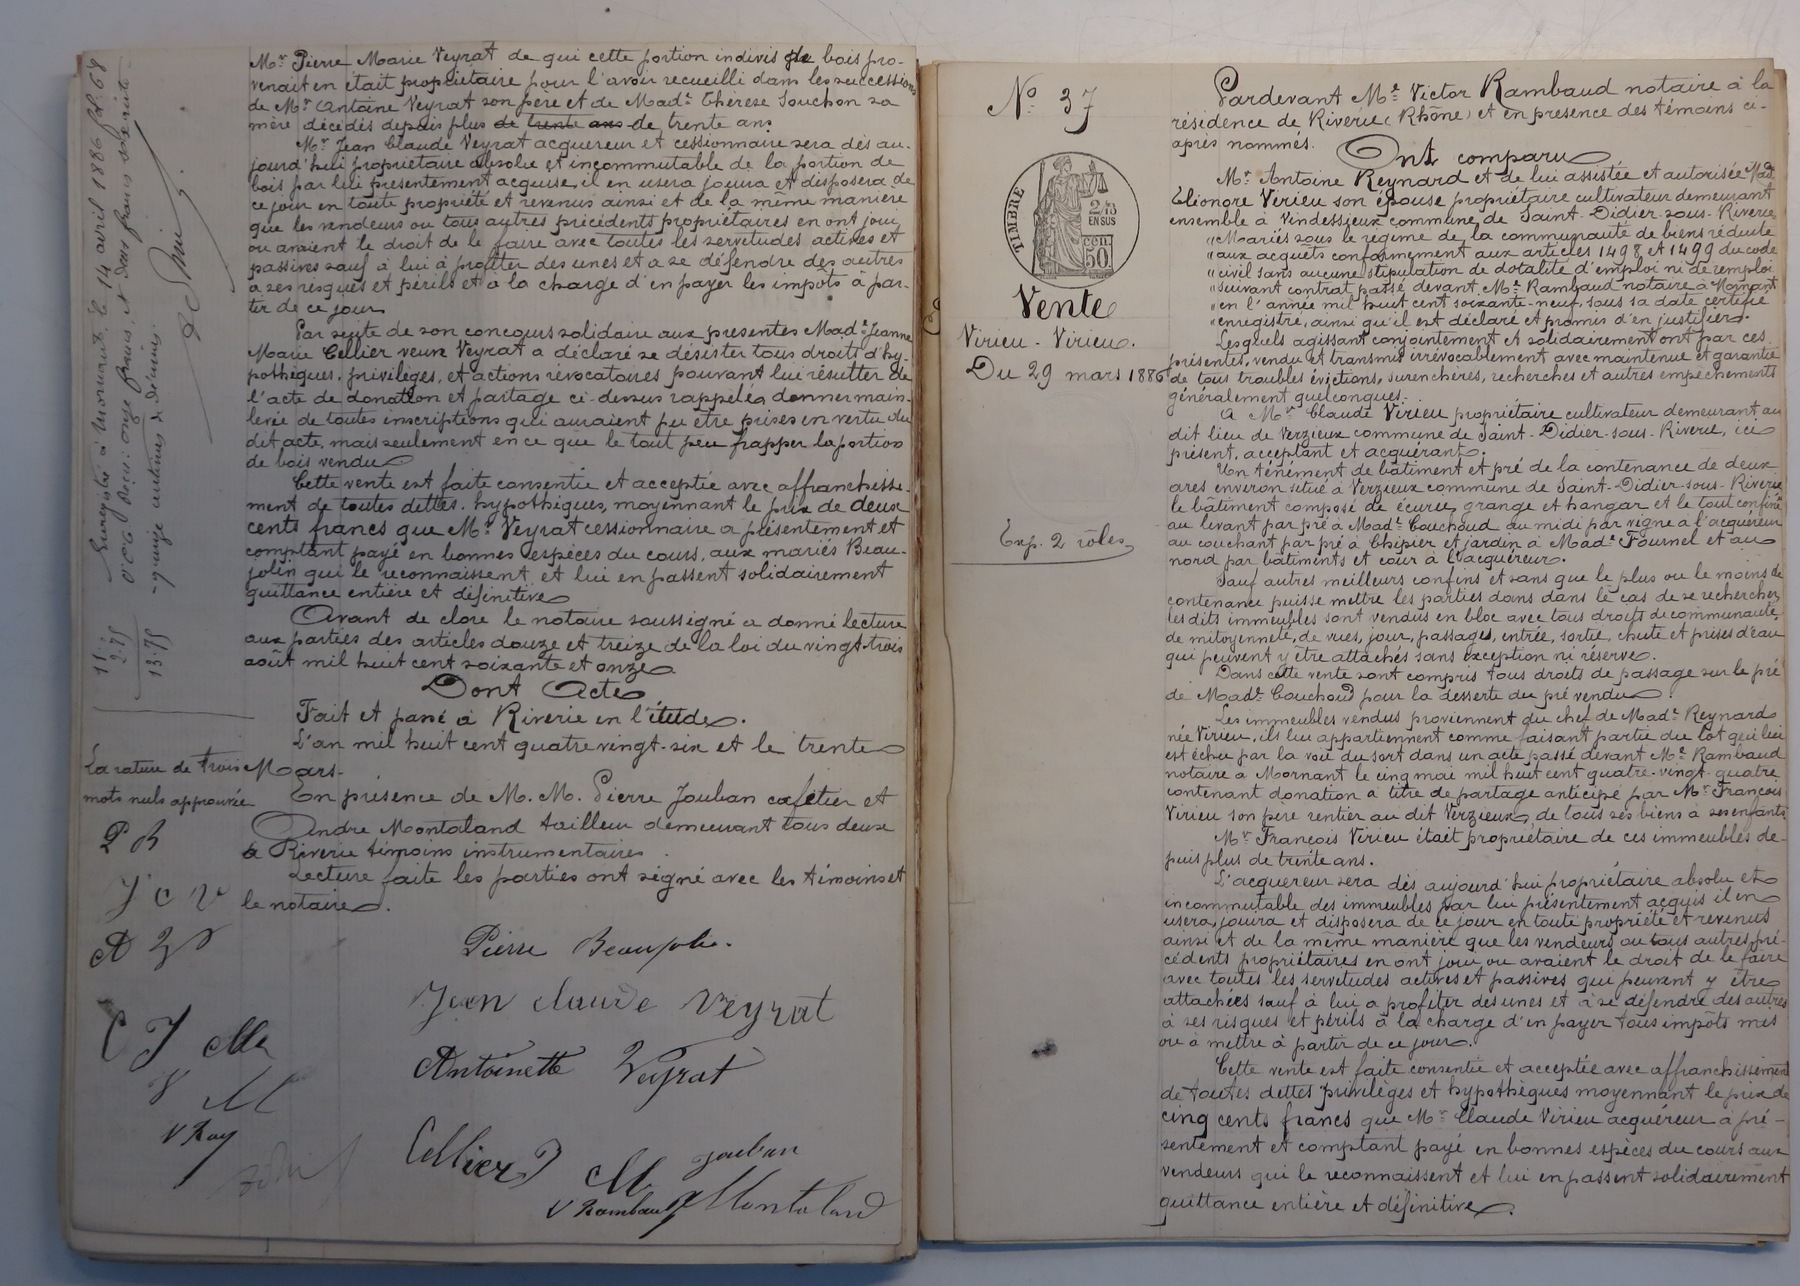 Mr Pierre Marie Veyrat de qui cette portion indivis de bois pro-
venait en était propriétaire pour l'avoir recueilli dans les successions
de Mr Antoine Veyrat son père et de Made Thérèse Souchon sa
mère décédés depuis plus de trente ans de trente ans
Mr Jean Claude Veyrat acquereur et cessionnaire sera dès au-
jourd'hui propriétaire absolu et incommutable de la portion de
bois par lui présentement acquise, il en usera jouira et disposera de
ce jour en toute propriété et revenus ainsi et de la même manière
que les vendeurs ou tous autres précédents propriétaires en ont joui
ou avaient le droit de le faire avec toutes les servetudes actives et
passives sauf à lui à profiter des unes et a se défendre des autres
a ses risques et périls et à la charge d'en payer les impôts à par-
tir de ce jour
Par suite de son concours solidaire aux presentes Made Jeanne
Marie Cellier veuve Veyrat a déclaré se désister tous droits d'hy-
pothèques, privilèges, et actions révocatoires pouvant lui résulter de
l'acte de donation et partage ci-dessus rappelés donner main-
levée de toutes inscriptions qui auraient pu être prises en vertu du
dit acte, mais seulement en ce que le tout peu frapper la portion
de bois vendu
Cette vente est faite consentie et acceptée avec affranchisse-
ment de toutes dettes, hypothèques, moyennant le prix de deux
cents francs que Mr Veyrat cessionnaire a présentement et
comptant payé en bonnes espèces du cours, aux mariés Beau-
jolin qui le reconnaissent et lui en passent solidairement
quittance entière et définitive
Avant de clore le notaire soussigné a donné lecture
aux parties des articles douze et treize de la loi du vingt-trois
août mil huit cent soixante et onze
Dont Acte
Fait et passé à Riverie en l'étude.
L'an mil huit cent quatre vingt-six et le trente
Mars.
En présence de M. M. Pierre Jouban cafetier et
Andre Montaland tailleur demeurant tous deux
à Riverie témoins instrumentaires.
Lecture faite les parties ont signé avec les témoins et
le notaire.
Enregistré à Mornant le 14 avril 1886 fol. 68
reçu: onze francs et deux francs soixante
quinze centimes de décimes.
11 "
2.75
13.75
La rature de trois
mots nuls approuvée
P B
J C V
A V
C J M
J M
V Ray
Pierre Beaujolin
Jean claude Veyrat
Antoinette Veyrat
Cellier
M
Jouban
V Rambaud
Montaland
No 37
TIMBRE
2/10
EN SUS
50 cen
Vente
Virieu - Virieu.
Du 29 mars 1886
Exp. 2 rôles
Pardevant Me Victor Rambaud notaire à la
résidence de Riverie (Rhône) et en presence des témoins ci-
après nommés.
Ont comparu
Mr Antoine Reynard et de lui assistée et autorisée Made
Elionore Virieu son épouse propriétaire cultivateur demeurant
ensemble à Vindessieux commune de Saint-Didier-sous-Riverie
"Mariés sous le régime de la communauté de biens réduite
"aux acquets conformement aux articles 1498 et 1499 du code
"civil sans aucune stipulation de dotalité d'emploi ni de remploi
"suivant contrat passé devant Me Rambaud notaire à Mornant
"en l'année mil huit cent soixante-neuf, sous sa date certifié
"enregistré, ainsi qu'il est déclaré et promis d'en justifier.
Lesquels agissant conjointement et solidairement ont par ces
présentes, vendu et transmis irrévocablement avec maintenue et garantie
de tous troubles évictions, surenchères, recherches et autres empêchements
généralement quelconques.
A Mr Claude Virieu propriétaire cultivateur demeurant au
dit lieu de Verzieux commune de Saint-Didier-sous-Riverie, ici
présent, acceptant et acquérant.
Un ténément de bâtiment et pré de la contenance de deux
ares environ situé à Verzieux commune de Saint-Didier-sous-Riverie
le bâtiment composé de écurie, grange et hangar et le tout confiné
au levant par pré à Made Couchoud au midi par vigne à l'acquéreur
au couchant par pré à Chipier et jardin à Made Fournel et au
nord par bâtiments et cour à l'acquéreur.
Sauf autres meilleurs confins et sans que le plus ou le moins de
contenance puisse mettre les parties dans dans le cas de se rechercher
les dits immeubles sont vendus en bloc avec tous droits de communauté,
de mitoyenneté, de vues, jour, passages, entrée, sortie, chute et prises d'eau
qui peuvent y être attachés sans exception ni réserve.
Dans cette vente sont compris tous droits de passage sur le pré
de Made Couchoud pour la desserte du pré vendu.
Les immeubles vendus proviennent du chef de Made Reynard
née Virieu, ils lui appartiennent comme faisant partie du lot qui lui
est échu par la voie du sort dans un acte passé devant Me Rambaud
notaire a Mornant le cinq mai mil huit cent quatre-vingt-quatre
contenant donation à titre de partage anticipé par Mr François
Virieu son père rentier au dit Verzieux, de tous ses biens à ses enfants
Mr François Virieu était propriétaire de ces immeubles de-
puis plus de trente ans.
L'acquereur sera dès aujourd'hui propriétaire absolu et
incommutable des immeubles par lui présentement acquis il en
usera, jouira et disposera de ce jour en toute propriété et revenus
ainsi et de la même manière que les vendeurs ou tous autres pré-
cédents propriétaires en ont joui ou avaient le droit de le faire
avec toutes les servetudes actives et passives qui peuvent y être
attachées sauf à lui a profiter des unes et à se défendre des autres
à ses risques et périls à la charge d'en payer tous impôts mis
ou à mettre à partir de ce jour.
Cette vente est faite consentie et acceptée avec affranchissement
de toutes dettes privilèges et hypothèques moyennant le prix de
cinq cents francs que Mr Claude Virieu acquéreur à pré-
sentement et comptant payé en bonnes espèces du cours aux
vendeurs qui le reconnaissent et lui en passent solidairement
quittance entière et définitive.